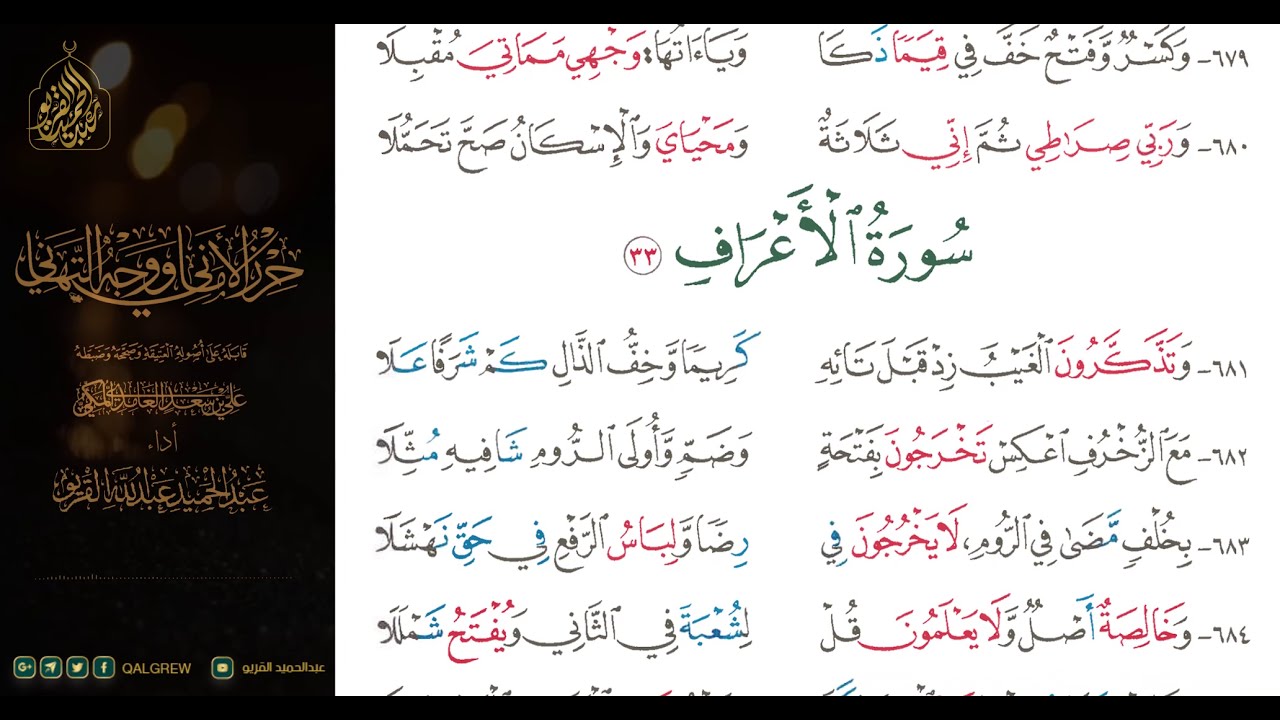 عبد الحميد القريو
حرز الأماني ووجه التهاني
قَابَلَهُ عَلَى أُصُولِهِ العَتِيقَةِ وَصَحَّحَهُ وَضَبَطَهُ
علي بن سعد الغامدي المكي
أداء
عبد الحميد عبد الله القريو
QALGREW
عبدالحميد القريو
٦٧٩- وَكَسْرٌ وَّفَتْحٌ خَفَّ فِي قِيَمًا ذَكَا وَيَاءَاتُهَا: وَجْهِي مَمَاتِيَ مُقْبِلَا
٦٨٠- وَرَبِّي صِرَاطِي ثُمَّ إِنِّي ثَلَاثَةٌ وَمَحْيَايَ وَالْإِسْكَانُ صَحَّ تَحَمُّلَا
سُورَةُ الْأَعْرَافِ ٣٣
٦٨١- وَتَذَّكَّرُونَ الْغَيْبُ زِدْ قَبْلَ تَائِهِ كَرِيمًا وَّخِفُّ الذَّالِ كَمْ شَرَفًا عَلَا
٦٨٢- مَعَ الزُّخْرُفِ اعْكِسْ تَخْرُجُونَ بِفَتْحَةٍ وَضَمٍّ وَّأُولَى الرُّومِ شَافِيهِ مُثِّلَا
٦٨٣- بِخُلْفٍ مَّضَىٰ فِي الرُّومِ، لَا يَخْرُجُونَ فِي رِضًا وَّلِبَاسُ الرَّفْعُ فِي حَقِّ نَهْشَلَا
٦٨٤- وَخَالِصَةٌ أَصْلٌ وَّلَا يَعْلَمُونَ قُلْ لِشُعْبَةَ فِي الثَّانِي وَيُفْتَحُ شَمْلَلَا